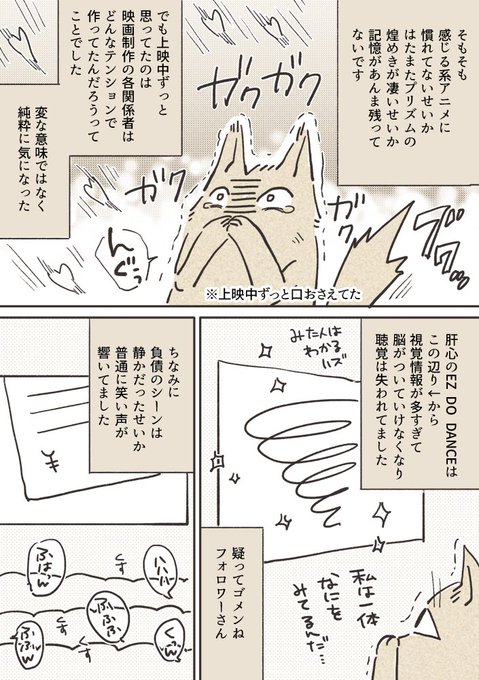 そもそも
感じる系アニメに
慣れてないせいか
はたまたプリズムの
煌めきが凄いせいか
記憶があんま残って
ないです
でも上映中ずっと
思ってたのは
映画制作の各関係者は
どんなテンションで
作ってたんだろうって
ことでした
変な意味ではなく
純粋に気になった
ガクガク
ガクガク
ブワッ
んぐぅ
※上映中ずっと口おさえてた
肝心のEZ DO DANCEは
この辺り←から
視覚情報が多すぎて
脳がついていけなくなり
聴覚は失われてました
みた人は
わかる
ハズ
私は一体
なにを
みてるんだ…
疑ってゴメンね
フォロワーさん
ちなみに
負債のシーンは
静かだったせいか
普通に笑い声が
響いてました
¥
ハハハ
くす
ふはっん
くすん
ふふふ
ふふふ
くす